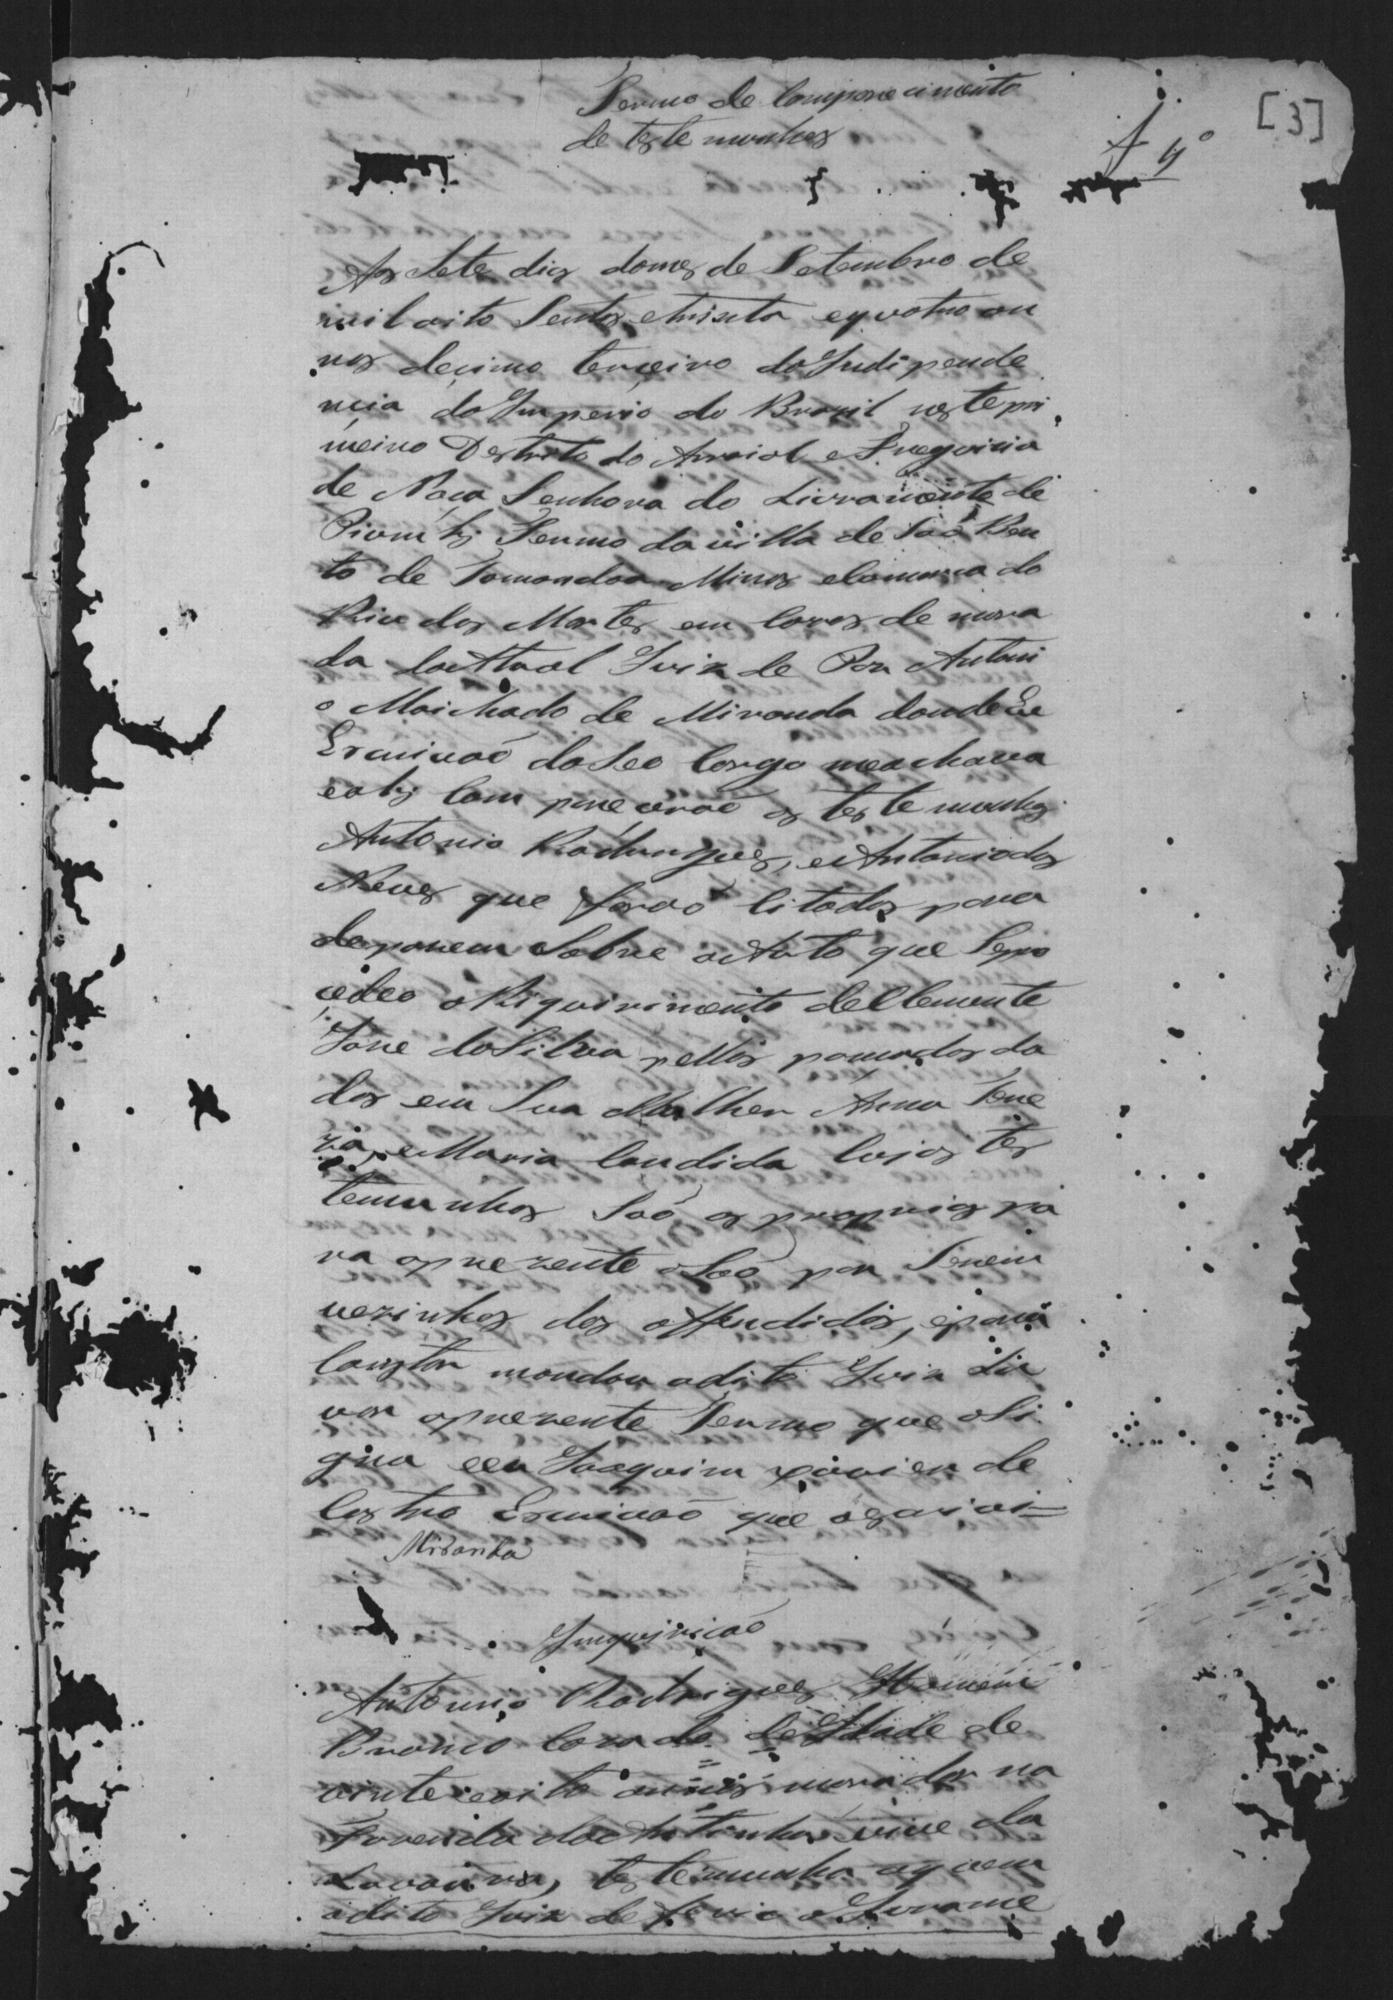 Termo de Comparecimento
de testemunhas
[3]
f 4º
Aos Sete dias domes de Setembro de
mil oito Sentos etrinta equatro an
nos decimo terceiro da Indipende
ncia do Imperio do Brazil neste pri
meiro Destrito do Arraial eFreguizia
de Noca Senhora do Livramento de
Piumhy Termo da villa de Saõ Ben
to de Tamandoa Minas eComarca do
Rio das Mortes em Cazas de mora
da do Atual Juiz de Paz Antoni
o Maichado de Miranda donde Eu
Escrivaõ do Seo Cargo me achava
eahy Com pareceraõ as testemunhas
Antonio Rodrigues, e Antonio das
Neves que foraõ Citados para
deporem Sobre o Auto que Sepro
cedeo a Riquirimento de Clemente
Joze da Silva pellas pancadas da
das em Sua Mulher Anna Tere
za, e Maria Candida Cujas tes
temunhas Saõ as proprias pa
ra aprezente eSaõ por Serem
vezinhos dos offendidos, epara
Constar mandou odito Juiz La
vrar oprezente Termo que aSi
gna eeu Joaquim Xavier de
Castro Escrivaõ que oescrivi=
Miranda
Inquiriçaõ
Antonio Rodrigues Homem
Branco Cazado de Idade de
vinte eoito annos morador na
Fazenda das vive da
Lavoura, testemunha aquem
odito Juiz de firio o Jurame